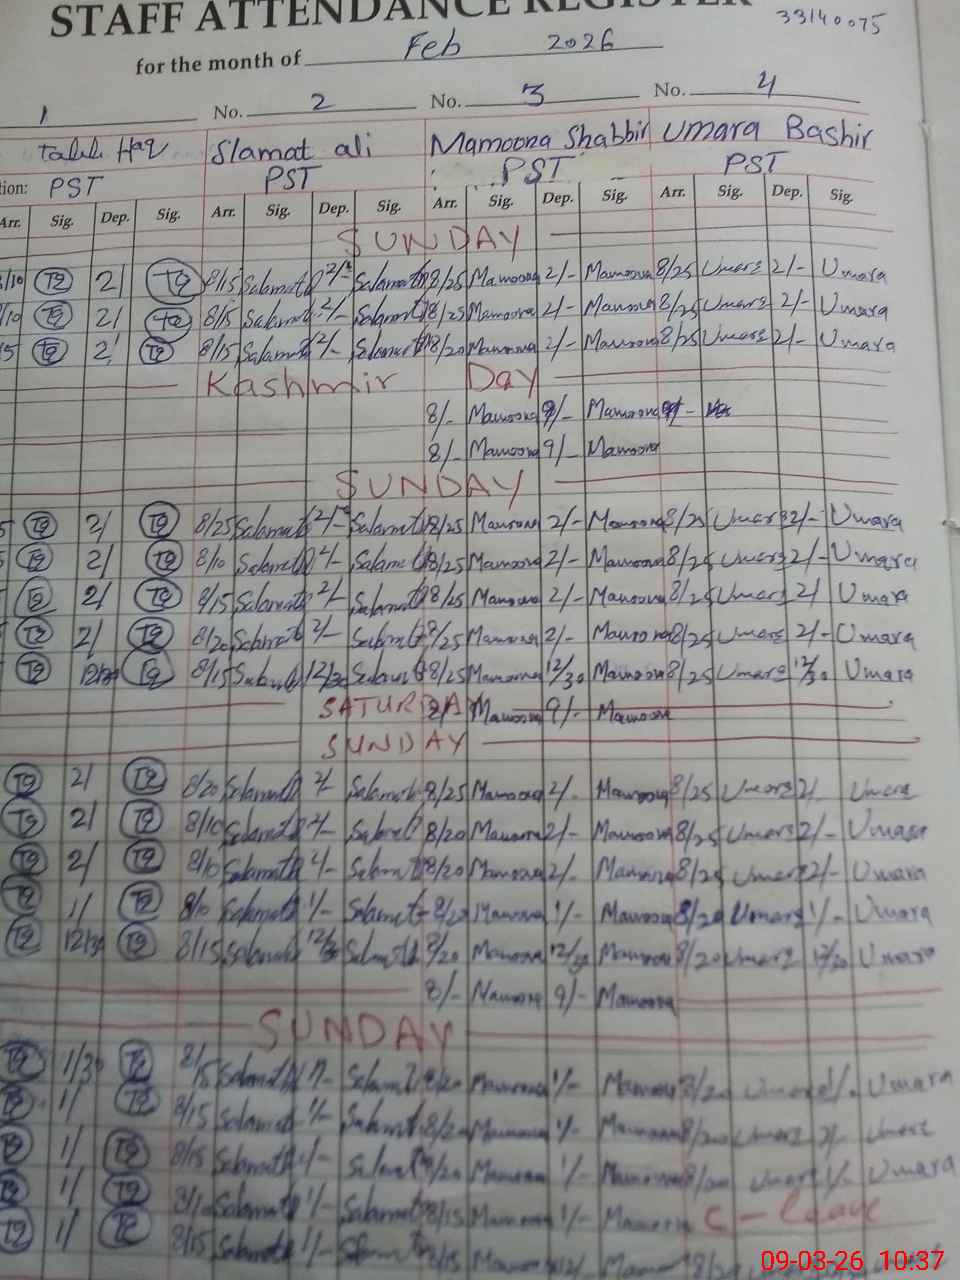 STAFF ATTENDANCE REGISTER
33140075
for the month of Feb 2026
1 No. 2 No. 3 No. 4
Slamat ali Mamoona Shabbir Umara Bashir
tion: PST PST PST PST
Arr. Sig. Dep. Sig. Arr. Sig. Dep. Sig. Arr. Sig. Dep. Sig. Arr. Sig. Dep. Sig.
SUNDAY
/10 TQ 2/ TQ 8/15 Salamat 2/- Salamat 8/25 Mamoona 2/- Mamoona 8/25 Umara 2/- Umara
/10 TQ 2/ TQ 8/15 Salamat 2/- Salamat 8/25 Mamoona 2/- Mamoona 8/25 Umara 2/- Umara
TQ 2/ TQ 8/15 Salamat 2/- Salamat 8/20 Mamoona 2/- Mamoona 8/25 Umara 2/- Umara
Kashmir Day
8/- Mamoona 9/- Mamoona
8/- Mamoona 9/- Mamoona
SUNDAY
TQ 2/ TQ 8/25 Salamat 2/- Salamat 8/25 Mamoona 2/- Mamoona 8/25 Umara 2/- Umara
TQ 2/ TQ 8/10 Salamat 2/- Salamat 8/25 Mamoona 2/- Mamoona 8/25 Umara 2/- Umara
TQ 2/ TQ 8/15 Salamat 2/- Salamat 8/25 Mamoona 2/- Mamoona 8/25 Umara 2/ Umara
TQ 2/ TQ 8/20 Salamat 2/- Salamat 8/25 Mamoona 2/- Mamoona 8/25 Umara 2/- Umara
TQ TQ 8/15 Salamat 12/30 Salamat 8/25 Mamoona 12/30 Mamoona 8/25 Umara 12/30 Umara
SATURDAY Mamoona 9/- Mamoona
SUNDAY
TQ 2/ TQ 8/20 Salamat 2/- Salamat 8/25 Mamoona 2/- Mamoona 8/25 Umara 2/ Umara
TQ 2/ TQ 8/10 Salamat 2/- Salamat 8/20 Mamoona 2/- Mamoona 8/25 Umara 2/- Umara
TQ 2/ TQ 8/10 Salamat Salamat 8/20 Mamoona 2/- Mamoona 8/25 Umara 2/- Umara
TQ 1/ TQ 8/10 Salamat 1/- Salamat 8/20 Mamoona 1/- Mamoona 8/20 Umara 1/- Umara
TQ 12/30 TQ 8/15 Salamat 12/30 Salamat 8/20 Mamoona 12/30 Mamoona 8/20 Umara Umara
8/- Mamoona 9/- Mamoona
SUNDAY
TQ 1/30 TQ 8/15 Salamat 1/- Salamat 8/20 Mamoona 1/- Mamoona 8/20 Umara 1/- Umara
TQ 1/ TQ 8/15 Salamat 1/- Salamat 8/20 Mamoona 1/- Mamoona 8/20 Umara Umara
TQ 1/ TQ 8/15 Salamat 1/- Salamat 8/20 Mamoona 1/- Mamoona Umara 1/- Umara
TQ 1/ TQ Salamat 1/- Salamat 8/15 Mamoona 1/- Mamoona C - leave
TQ 1/ TQ 8/15 Salamat 1/-
09-03-26 10:37